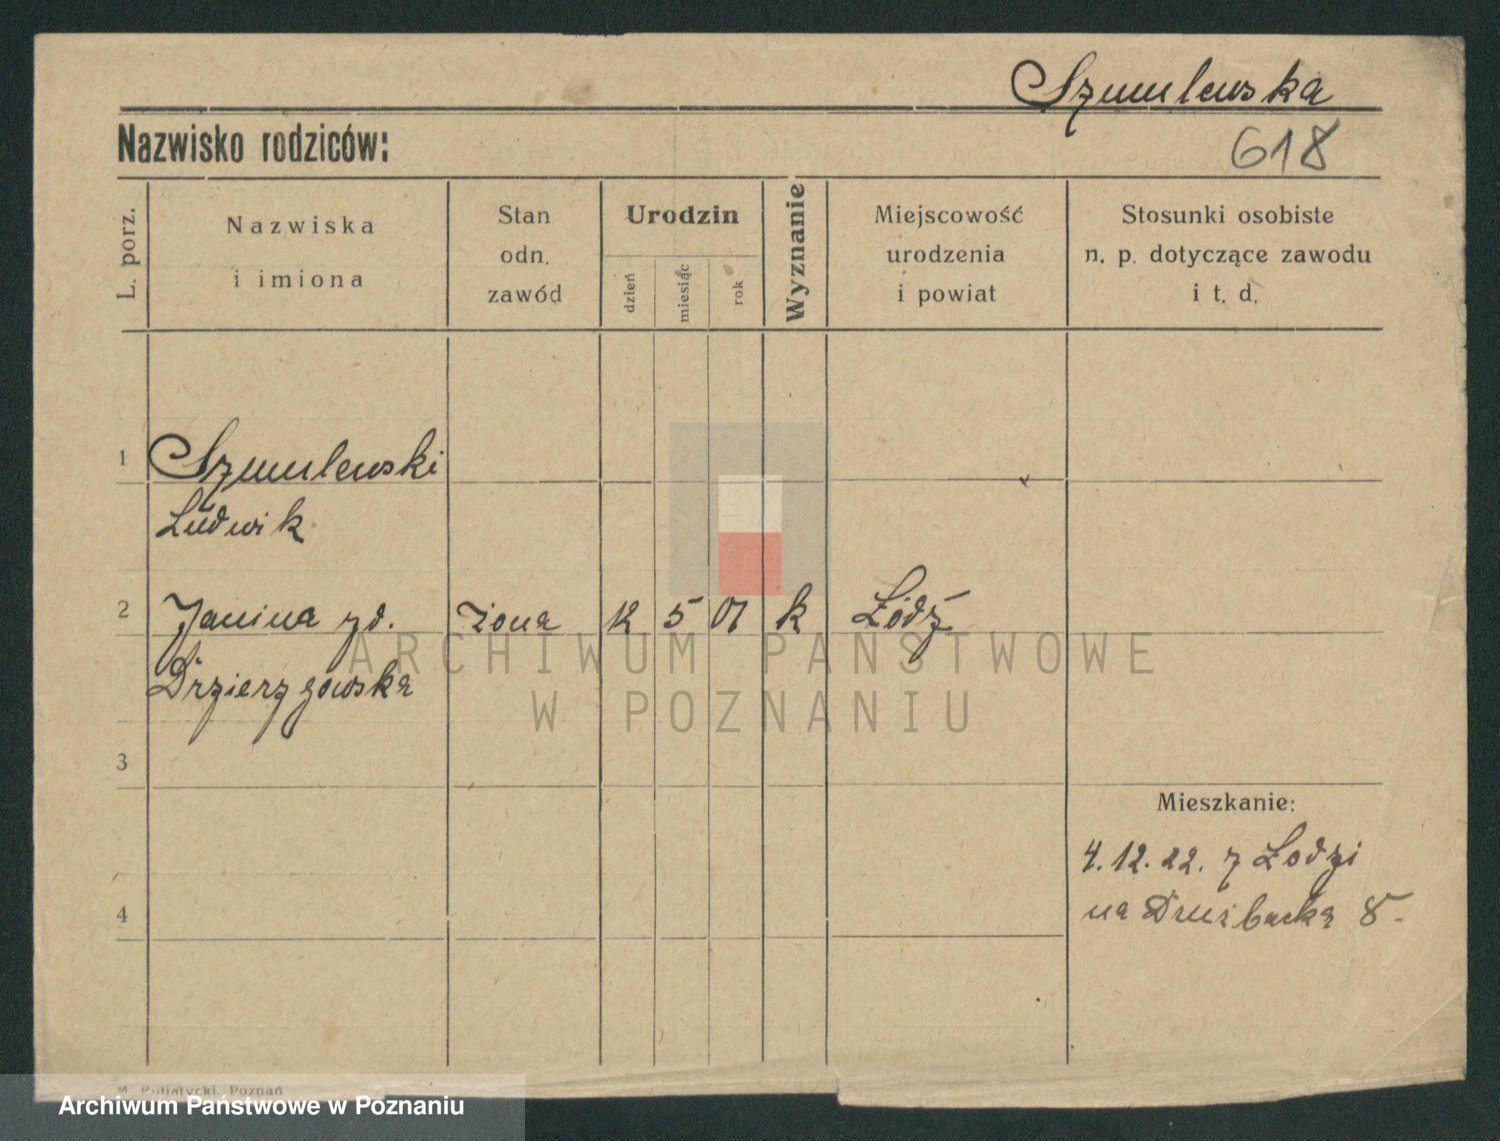 Szmulewska
Nazwisko rodziców:
618
L. porz.
Nazwiska
i imiona
Stan
odn.
zawód
Urodzin
dzień
miesiąc
rok
Wyznanie
Miejscowość
urodzenia
i powiat
Stosunki osobiste
n. p. dotyczące zawodu
i t. d.
1 Szmulewski
Ludwik
2 Janina zd. żona 12 5 01 k Łódź
Drzierzgowska
ARCHIWUM PAŃSTWOWE
W POZNANIU
3
Mieszkanie:
4.12.22. z Łodzi
na Drużbacka 8.
4
M. Putiatycki, Poznań
Archiwum Państwowe w Poznaniu